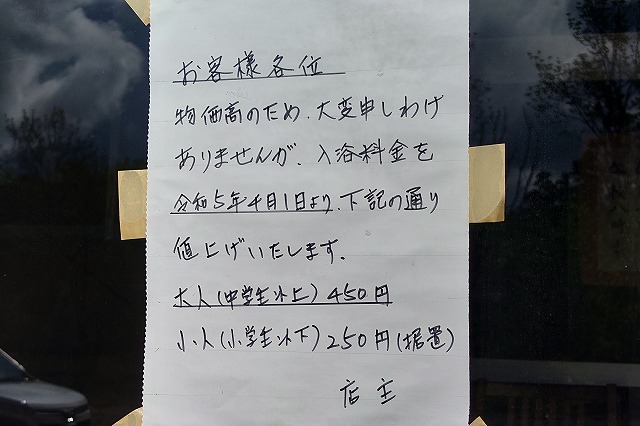 お客様各位
物価高のため、大変申しわけ
ありませんが、入浴料金を
令和5年4月1日より、下記の通り
値上げいたします。
大人(中学生以上)450円
小人(小学生以下)250円(据置)
店主